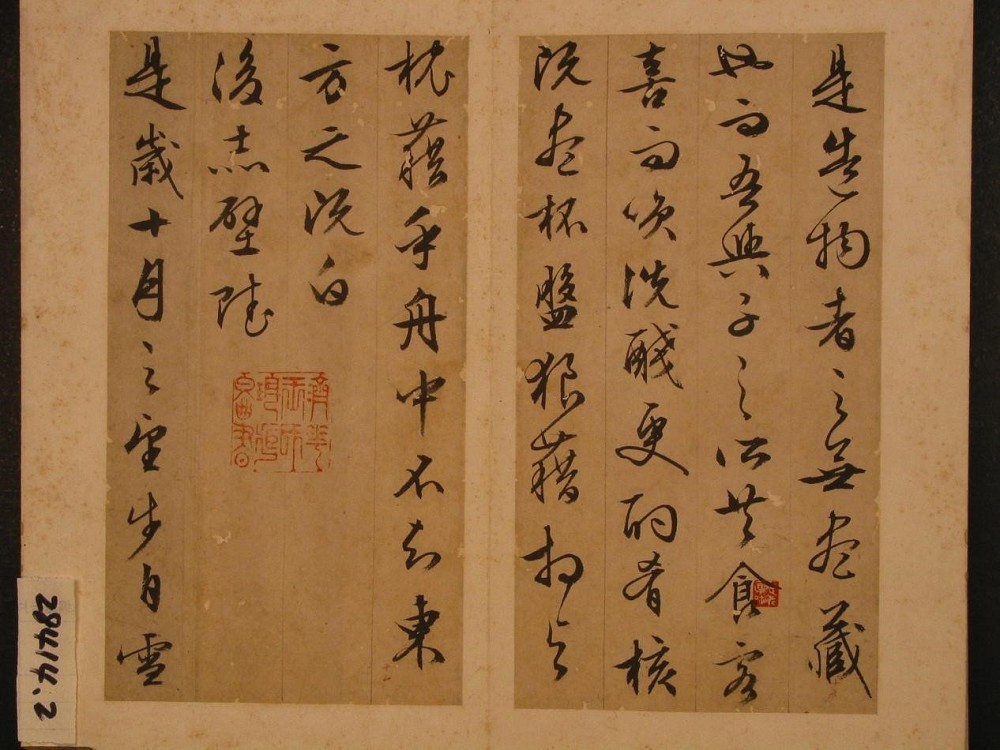 是造物者之無盡藏
也而吾與子之所共食客
喜而笑洗醆更酌肴核
既盡杯盤狼藉相與
枕藉乎舟中不知東
方之既白
後赤壁賦
是歲十月之望步自雪
28414.2